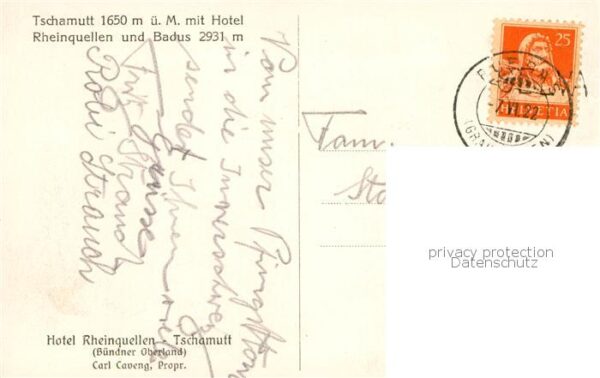 Tschamutt 1650 m ü. M. mit Hotel
Rheinquellen und Badus 2931 m
Von unser Pfingsttour
in die Innerschweiz
sendet Ihnen viele
Grüsse
Fritz Strauch
Robi Strauch
Hotel Rheinquellen - Tschamutt
(Bündner Oberland)
Carl Caveng, Propr.
Fam.
25
HELVETIA
RUERAS
VI.22
privacy protection
Datenschutz